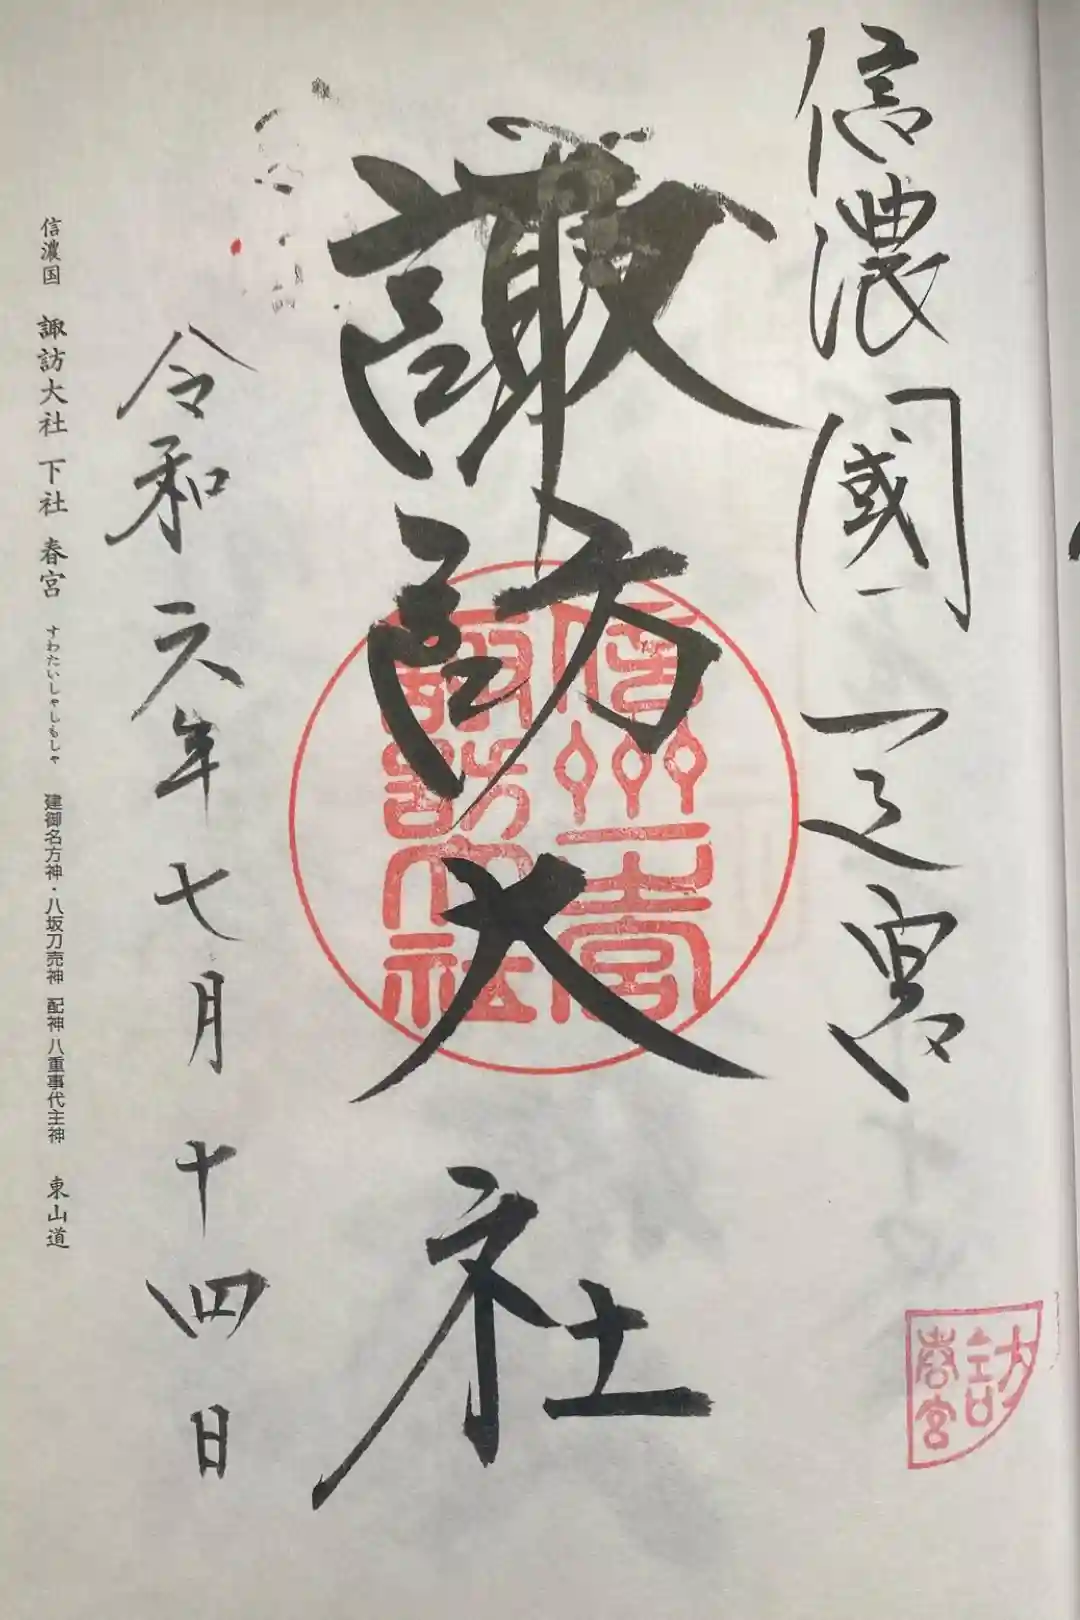 信濃國一之宮
諏訪大社
令和六年七月十四日
信濃国 諏訪大社 下社 春宮 すわたいしゃしもしゃ 建御名方神・八坂刀売神 配神 八重事代主神 東山道
信州一之宮
諏訪大社
春宮